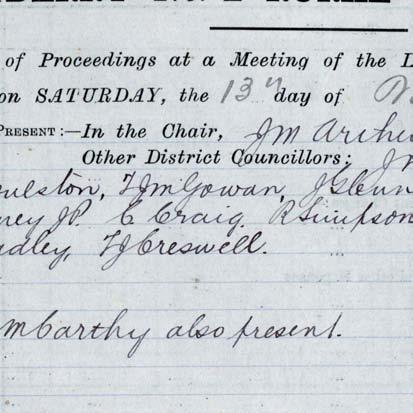 of Proceedings at a Meeting of the
on SATURDAY, the 13th day of
PRESENT:—In the Chair, J M Archer
Other District Councillors;
T J McGowan, J Glenn
J.P. C Craig, R Simpson
T J Creswell.
McCarthy also present.